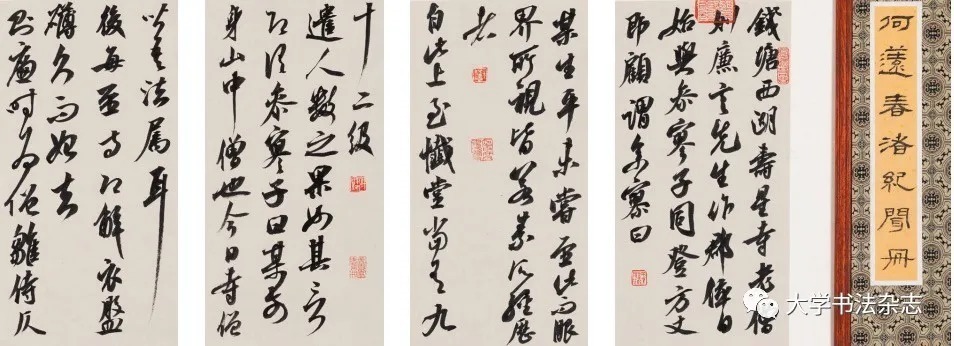 何薳春渚紀聞冊
錢塘西湖壽星寺老僧
則廉言先生作郡倅日
始與參寥子同登方丈
即顧謂參寥曰
某生平未嘗至此而眼
界所視皆若素所經歷
者
自此上至懺堂當有九
十二級
遣人數之果如其言
即謂參寥子曰某前
身山中僧也今日寺僧
皆吾法属耳
後每至寺即解衣盤
礴久而始去
則廉時為僧雛侍仄
大学书法杂志